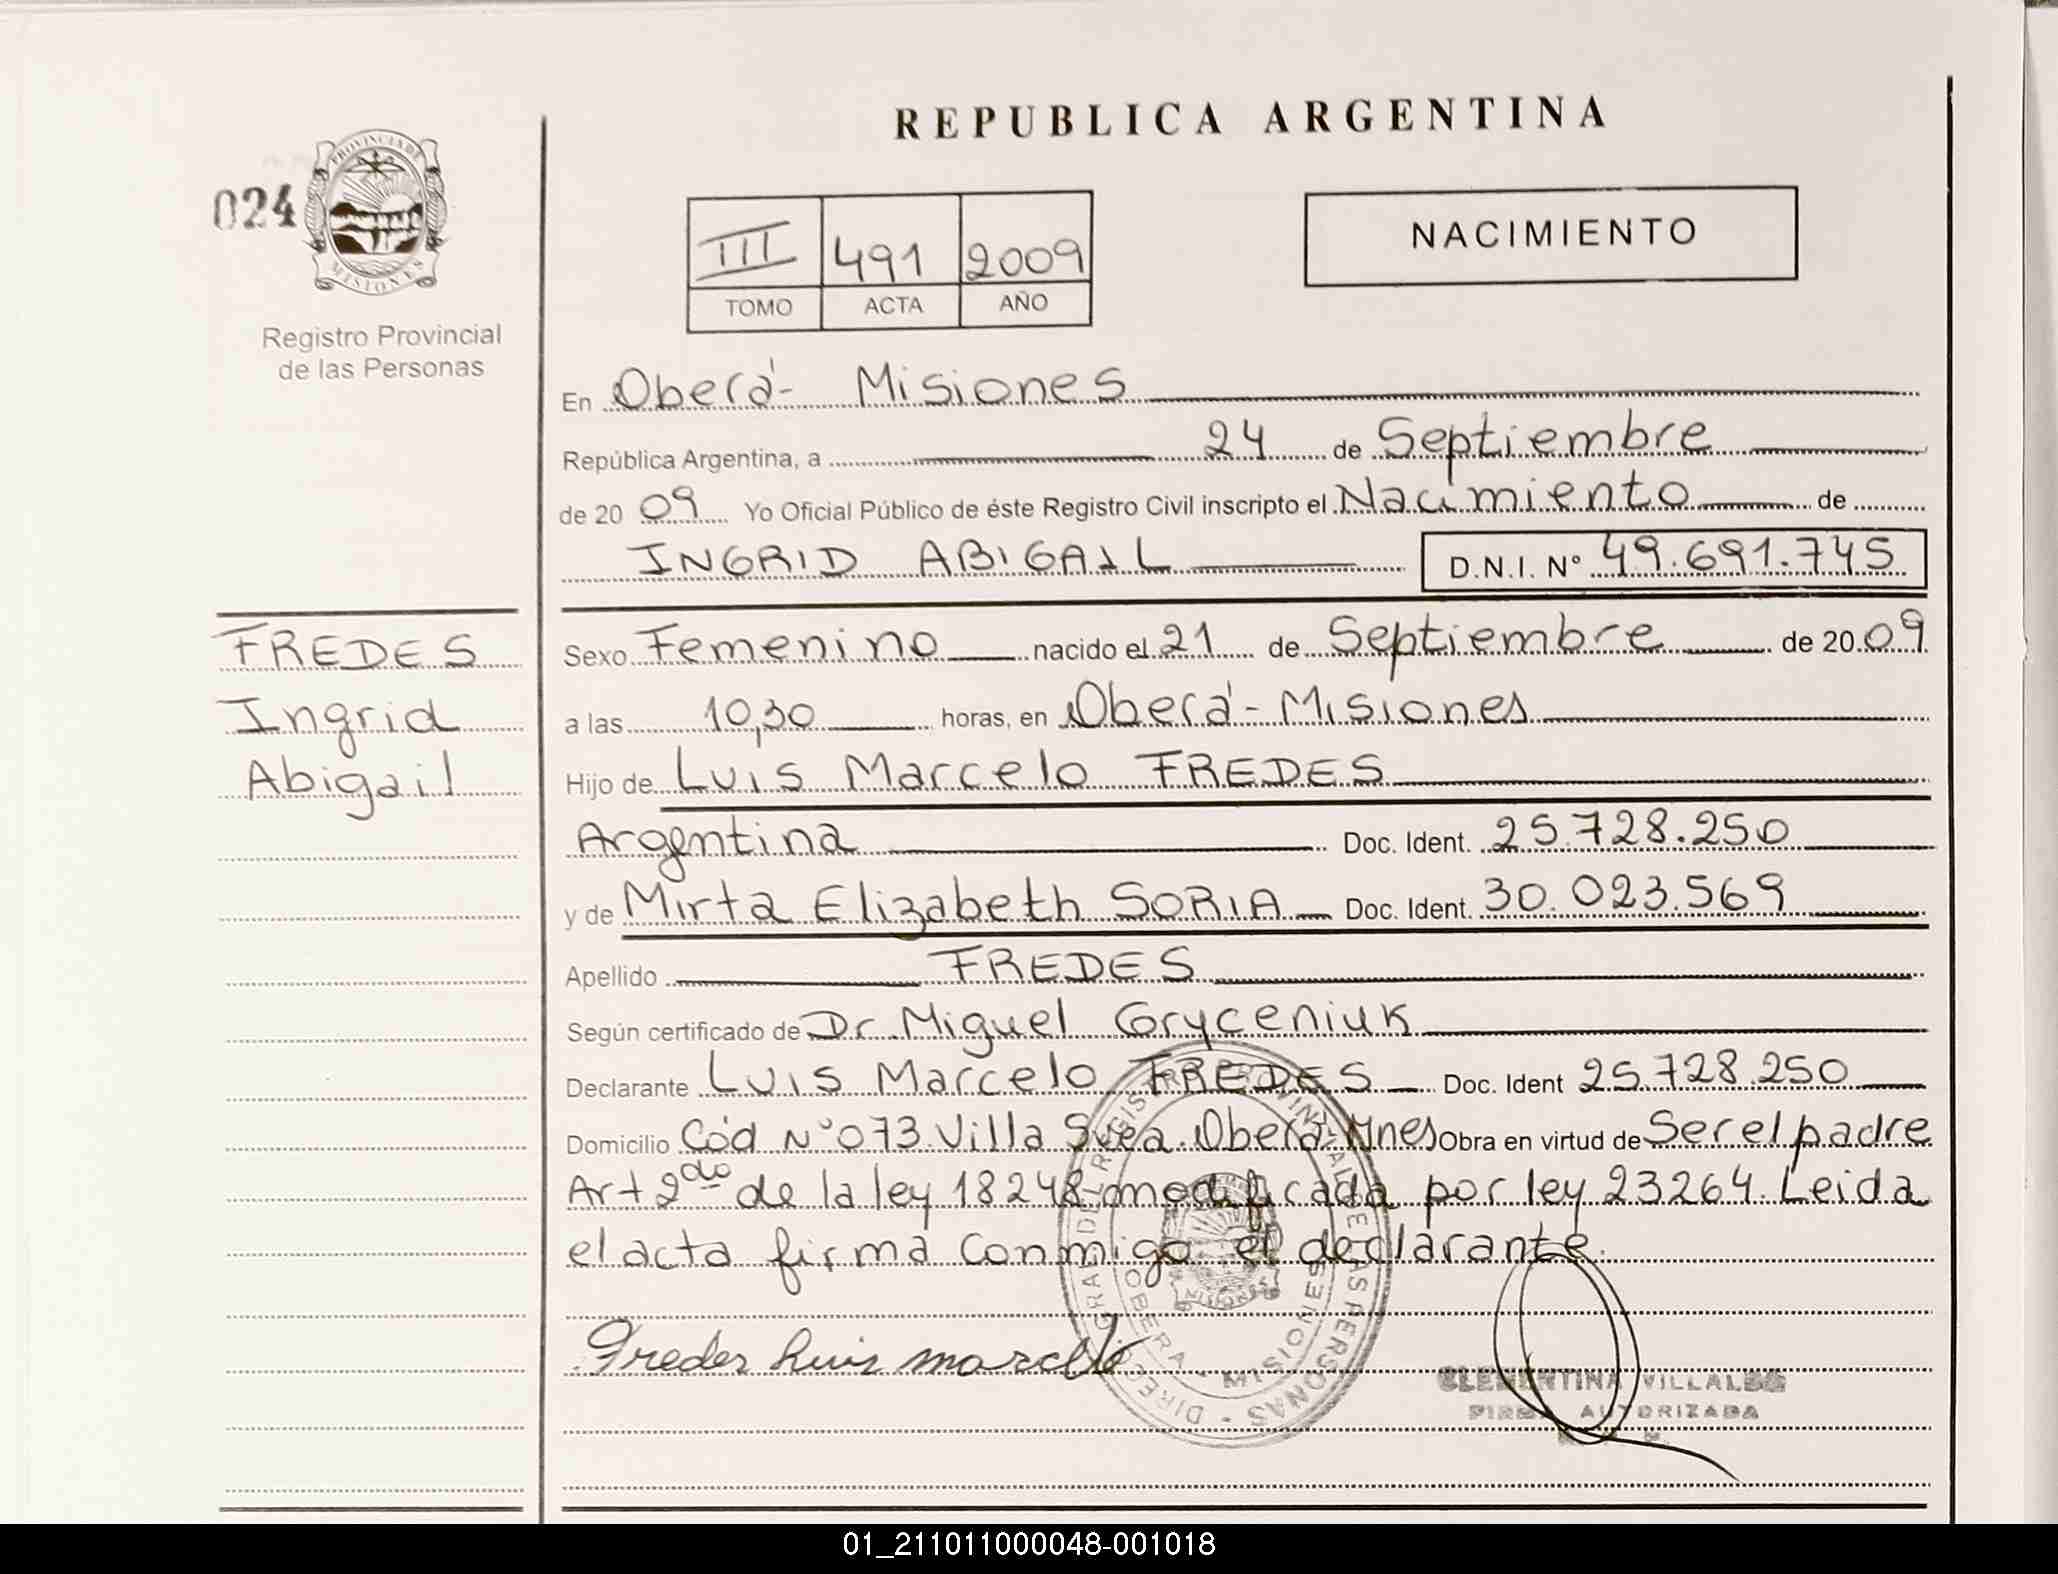 REPUBLICA ARGENTINA
024
PROVINCIA DE
MISIONES
Registro Provincial
de las Personas
III 491 2009
TOMO ACTA AÑO
NACIMIENTO
En Oberá- Misiones
República Argentina, a 24 de Septiembre
de 20 09 Yo Oficial Público de éste Registro Civil inscripto el Nacimiento de
INGRID ABIGAIL D.N.I. Nº 49.691.745
FREDES
Ingrid
Abigail
Sexo Femenino nacido el 21 de Septiembre de 20 09
a las 10,30 horas, en Oberá - Misiones
Hijo de Luis Marcelo FREDES
Argentina Doc. Ident. 25.728.250
y de Mirta Elizabeth SORIA Doc. Ident. 30.023.569
Apellido FREDES
Según certificado de Dr. Miguel Gryceniuk
Declarante Luis Marcelo FREDES Doc. Ident 25.728.250
Domicilio Cód Nº 073. Villa Svea. Oberá. Mnes Obra en virtud de Ser el padre
Art 2do de la ley 18248 modificada por ley 23264. Leida
el acta firma conmigo el declarante.
Fredes Luis marcelo
DIRECC. GRAL. DEL REGISTRO PROVINCIAL DE LAS PERSONAS
OBERA - MISIONES
CLEMENTINA VILLALBA
FIRMA AUTORIZADA
01_211011000048-001018